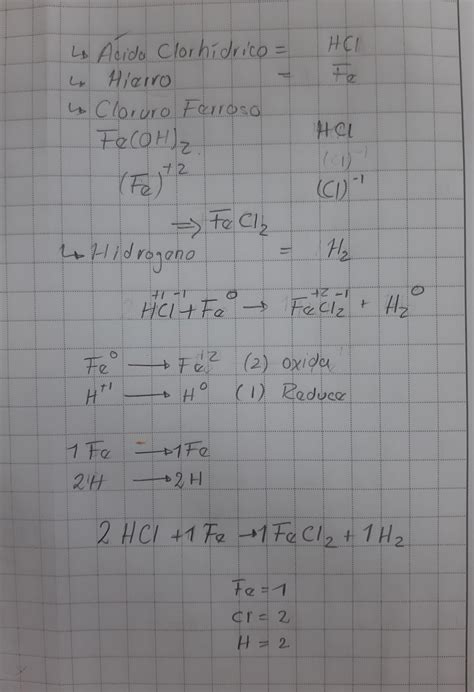 ↳ Ácido Clorhídrico = HCl
↳ Hierro = Fe
↳ Cloruro Ferroso
Fe(OH)₂ HCl
(Cl)⁻¹
(Fe)⁺² (Cl)⁻¹
⇒ FeCl₂
↳ Hidrogeno = H₂
+1 -1 0 +2 -1 0
HCl + Fe → FeCl₂ + H₂
Fe⁰ → Fe⁺² (2) oxida
H⁺¹ → H⁰ (1) Reduce
1 Fe → 1Fe
2H → 2H
2 HCl + 1 Fe → 1 FeCl₂ + 1H₂
Fe = 1
Cl = 2
H = 2